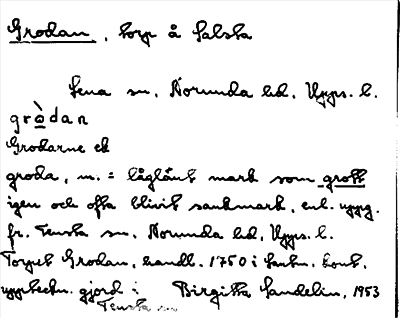 Grodan, torp å Salsta
Lena sn, Norunda hd, Upps. l.
gròdan
Grodarne ek
groda, m. = låglänt mark som grott
igen och ofta blivit sankmark, enl. uppg.
fr. Tensta sn, Norunda hd, Upps. l.
Torpet Grodan, handl. 1750 i
uppteckn. gjord i Birgitta Sandelin, 1953
Tensta sn